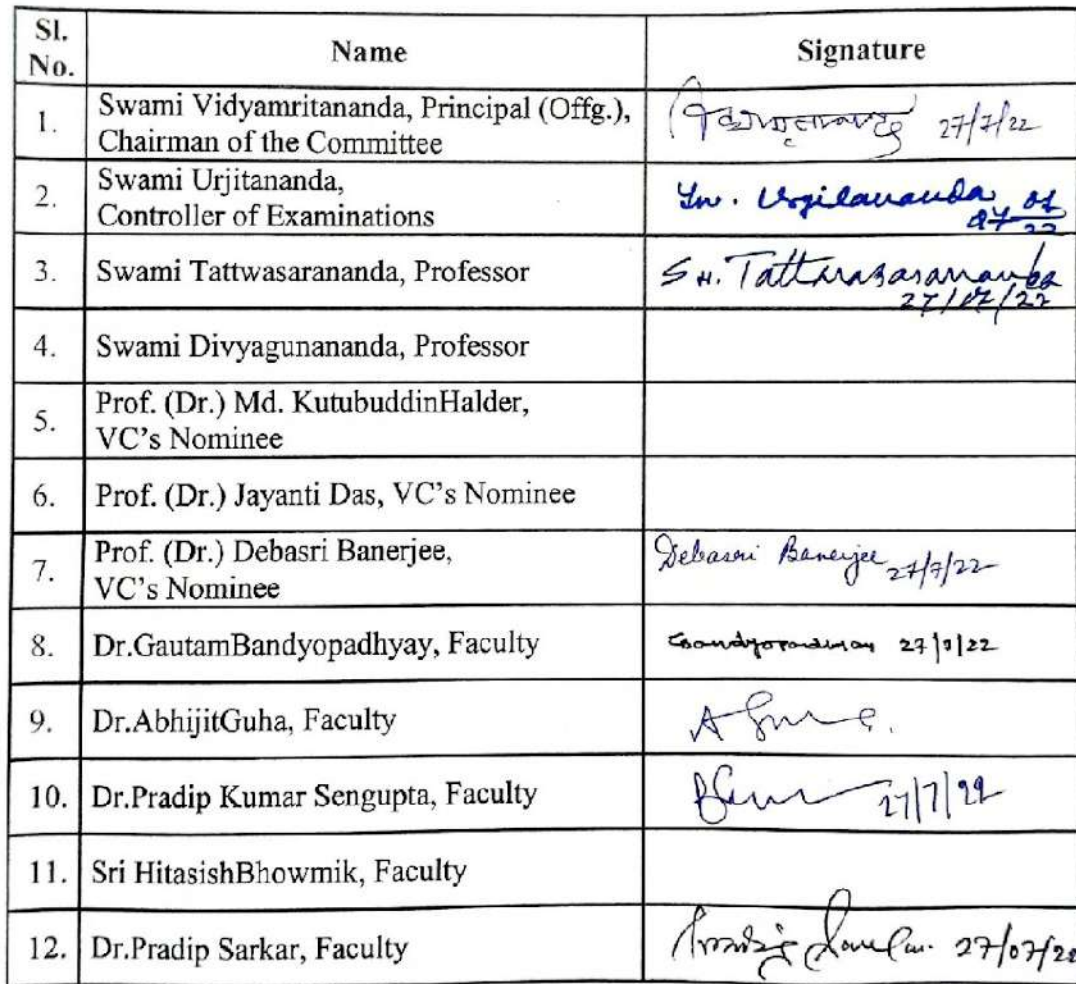 Sl. No. Name Signature
1. Swami Vidyamritananda, Principal (Offg.),
Chairman of the Committee 27/7/22
2. Swami Urjitananda,
Controller of Examinations Sw. Urjitananda
3. Swami Tattwasarananda, Professor Sw. Tattwasarananda
27/07/22
4. Swami Divyagunananda, Professor
5. Prof. (Dr.) Md. KutubuddinHalder,
VC's Nominee
6. Prof. (Dr.) Jayanti Das, VC's Nominee
7. Prof. (Dr.) Debasri Banerjee,
VC's Nominee Debasri Banerjee 27/7/22
8. Dr.GautamBandyopadhyay, Faculty 27/7/22
9. Dr.AbhijitGuha, Faculty
10. Dr.Pradip Kumar Sengupta, Faculty 27/7/22
11. Sri HitasishBhowmik, Faculty
12. Dr.Pradip Sarkar, Faculty 27/07/22